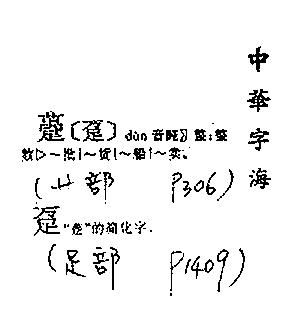 中華字海
躉〔趸〕dǔn 音盹 整;整
数▷~批|~货|~船|~卖。
(艹部 P306)
趸 “躉”的简化字.
(足部 P1409)